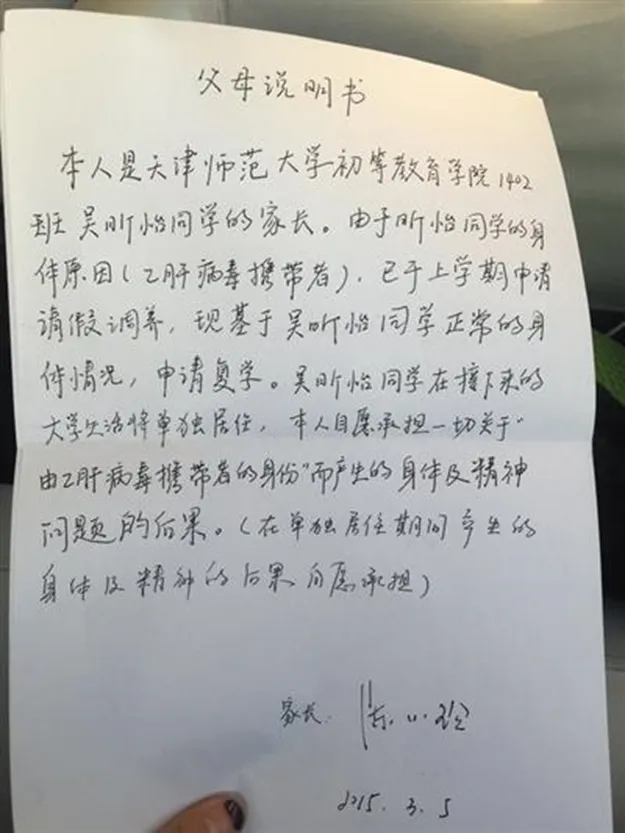 父母说明书
本人是天津师范大学初等教育学院1402
班吴昕怡同学的家长。由于昕怡同学的身
体原因(乙肝病毒携带者),已于上学期申请
请假调养,现基于吴昕怡同学正常的身
体情况,申请复学。吴昕怡同学在接下来的
大学生活将单独居住,本人自愿承担一切关于"
由乙肝病毒携带者的身份"而产生的身体及精神
问题的后果。(在单独居住期间产生的
身体及精神的后果自愿承担)
家长:
2015.3.5